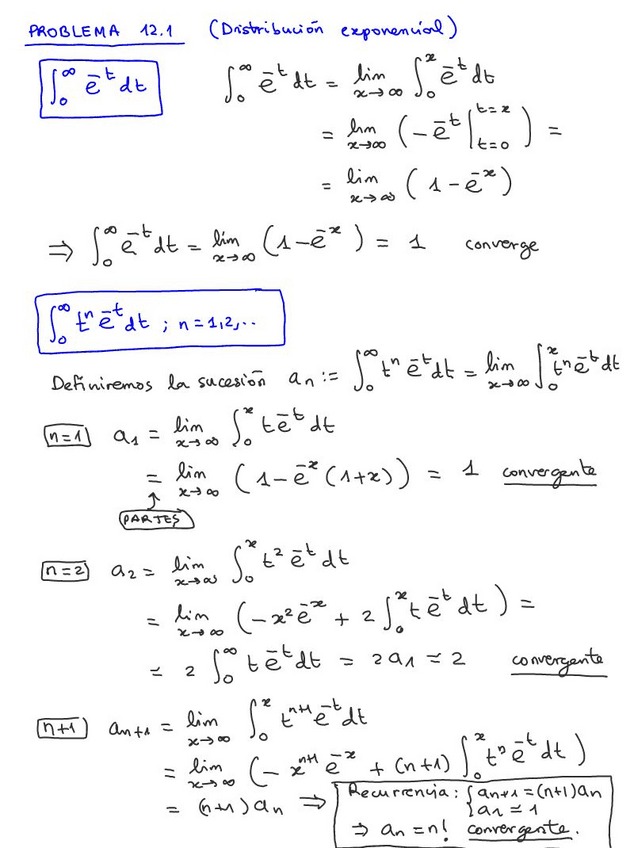 PROBLEMA 12.1 (Distribución exponencial)
∫₀^∞ e^{-t} dt
∫₀^∞ e^{-t} dt = lim_{x→∞} ∫₀^x e^{-t} dt
= lim_{x→∞} (-e^{-t} |_{t=0}^{t=x}) =
= lim_{x→∞} (1 - e^{-x})
⇒ ∫₀^∞ e^{-t} dt = lim_{x→∞} (1 - e^{-x}) = 1 converge
∫₀^∞ t^n e^{-t} dt ; n = 1,2,..
Definiremos la sucesión a_n := ∫₀^∞ t^n e^{-t} dt = lim_{x→∞} ∫₀^x t^n e^{-t} dt
n=1 a₁ = lim_{x→∞} ∫₀^x t e^{-t} dt
= lim_{x→∞} (1 - e^{-x} (1+x)) = 1 convergente
↑
PARTES
n=2 a₂ = lim_{x→∞} ∫₀^x t² e^{-t} dt
= lim_{x→∞} (-x² e^{-x} + 2 ∫₀^x t e^{-t} dt) =
= 2 ∫₀^∞ t e^{-t} dt = 2a₁ = 2 convergente
n+1 a_{n+1} = lim_{x→∞} ∫₀^x t^{n+1} e^{-t} dt
= lim_{x→∞} (-x^{n+1} e^{-x} + (n+1) ∫₀^x t^n e^{-t} dt)
= (n+1) a_n ⇒
Recurrencia: { a_{n+1} = (n+1) a_n
a₁ = 1
⇒ a_n = n! convergente.